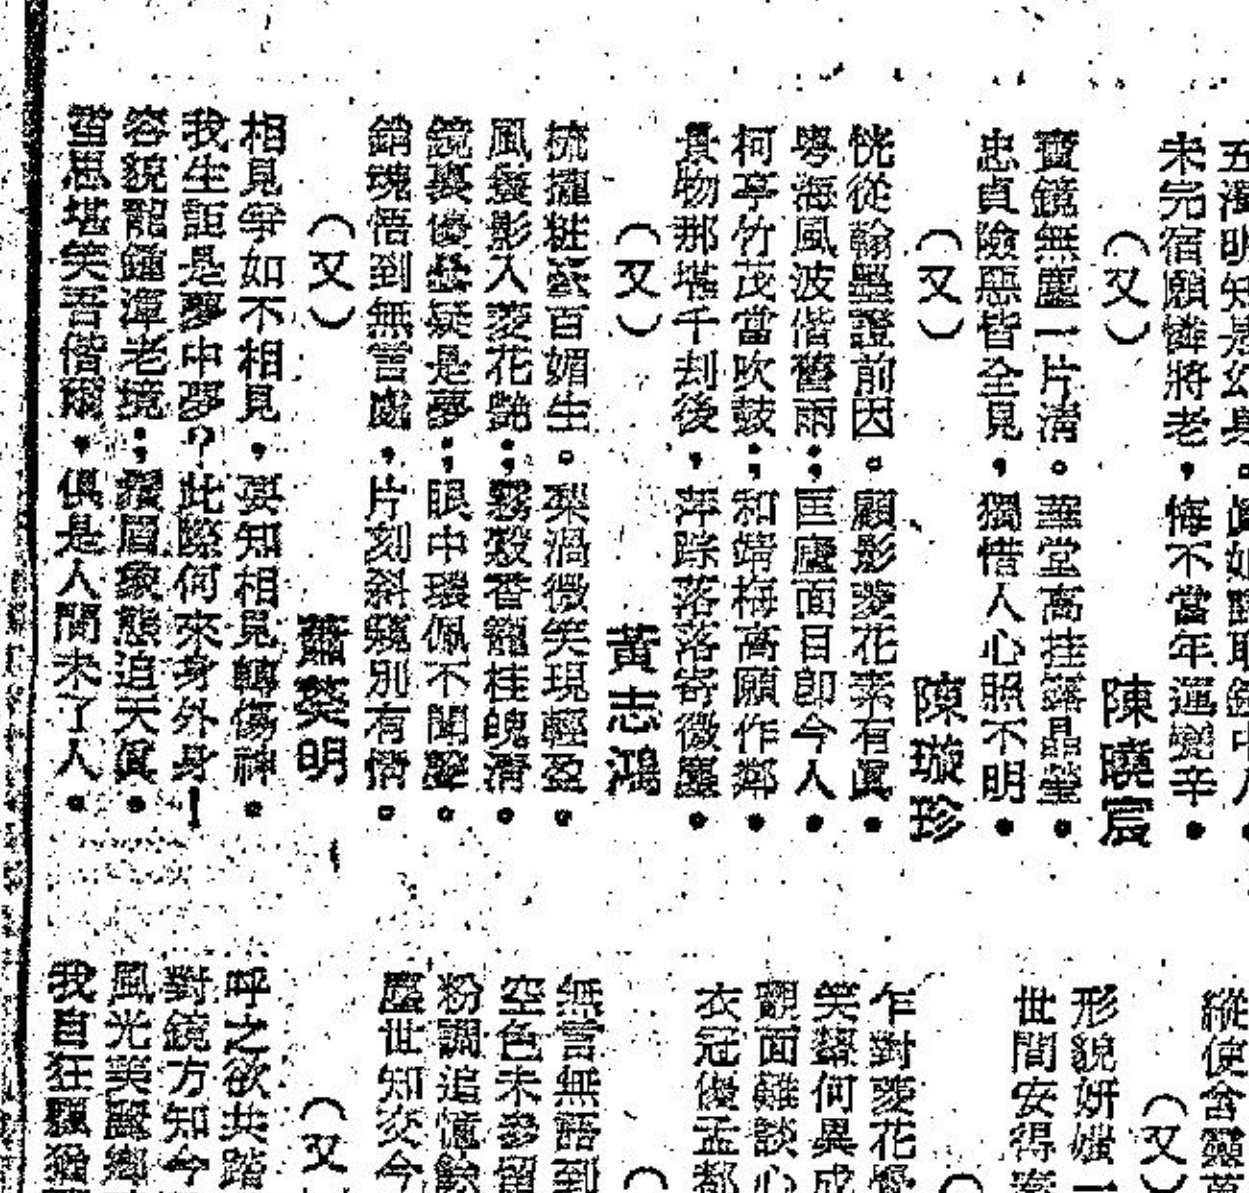 五濁明知是幻身。
未完宿願憐將老，悔不當年運甓辛。
（又） 陳曉宸
寶鏡無塵一片清。華堂高挂露晶瑩。
忠貞險惡皆全見，獨惜人心照不明。
（又） 陳璇珍
恍從翰墨證前因。顧影菱花素有眞。
粵海風波偕舊雨；匡廬面目卽今人。
柯亭竹茂當吹鼓；和靖梅高願作鄰。
景物那堪千刦後，萍踪落落寄微塵。
（又） 黃志鴻
梳攏粧嚴百媚生。梨渦微笑現輕盈。
風鬟影入菱花艷；霧縠香籠桂魄淸。
鏡裏優曇疑是夢；眼中環佩不聞聲。
銷魂悟到無言處，片刻斜窺別有情。
（又） 蕭葵明
相見爭如不相見，要知相見轉傷神。
我生詎是夢中夢？此際何來身外身！
容貌龍鍾漳老境；攢眉皺態迫天眞。
當思堪笑吾偕爾，俱是人間未了人。
縱使含靈
（又）
形貌妍媸一
世間安得
乍對菱花
笑顰何異成
覯面難談心
衣冠優孟都
無言無語到
空色未參留
粉調追憶
塵世知交今
（又
呼之欲共踏
對鏡方知今
風光美麗鄉
我自狂飄猶